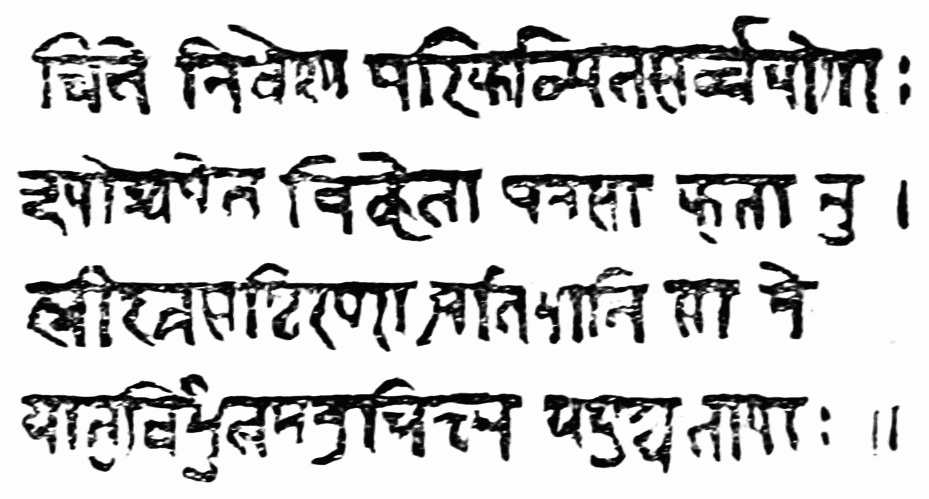 चित्ते निवेश्य परिकल्पितसर्व्वयोगाः
रूपोच्चयेन विहिता मनसा कृता नु ।
स्त्रीरत्नसृष्टिरपरा प्रतिभाति सा मे
धातुर्विभुत्वमनुचिन्त्य वपुश्च तस्याः ॥